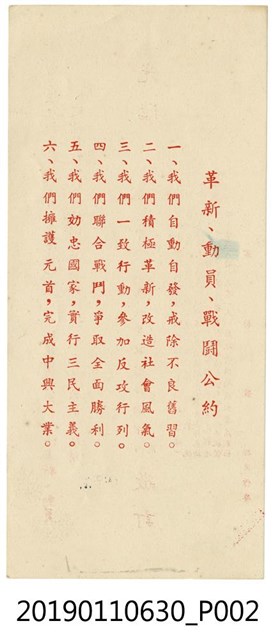 革新、動員、戰鬪公約
一、我們自動自發，戒除不良舊習。
二、我們積極革新，改造社會風氣。
三、我們一致行動，參加反攻行列。
四、我們聯合戰鬥，爭取全面勝利。
五、我們効忠國家，實行三民主義。
六、我們擁護元首，完成中興大業。
20190110630_P002